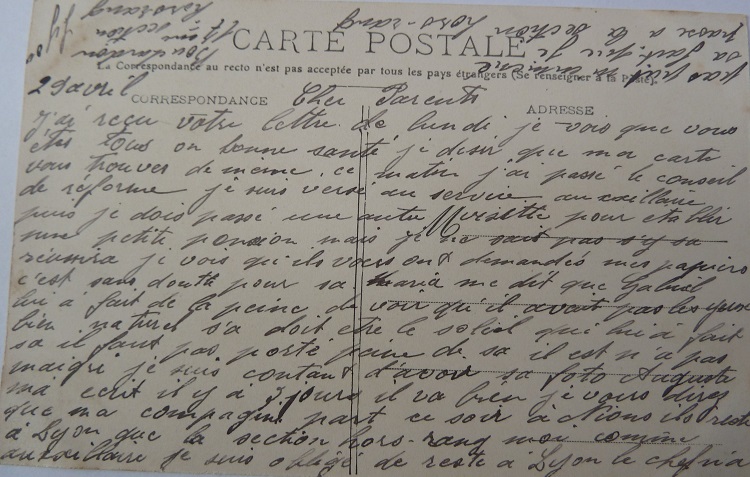 CARTE POSTALE
La Correspondance au recto n'est pas acceptée par tous les pays étrangers (Se renseigner à la Poste).
CORRESPONDANCE
ADRESSE
29 avril
Cher Parents
J'ai reçu votre lettre de lundi je vois que vous
êtes tous en bonne santé je désir que ma carte
vous trouves de meme. ce matin j'ai passé le conseil
de réforme je suis versé au service auxiliaire
puis je dois passé une autre pour etablir
une petite pension mais je ne sait pas s'y sa
réussira je vois qu'ils vous ont demandés mes papiers
c'est sans doute pour sa Maria me dit que Gabriel
lui à fait de la peine de voir qu'il avait pas les yeux
bien naturel s'a doit etre le soleil qui lui à fait
sa il faut pas porté peine de sa il est n'a pas
maigri je suis contant d'avoir sa foto Augusta
ma ecrit il y a 3 jours il va bien je vous direz
que ma compagnie part ce soir à Nions ils reste
à Lyon que la section hors-rang moi comme
auxiliaire je suis obligé de reste à Lyon le chef n'a
pas fait
sa fait que je
passe a la section
hors-rang
section
hors rang